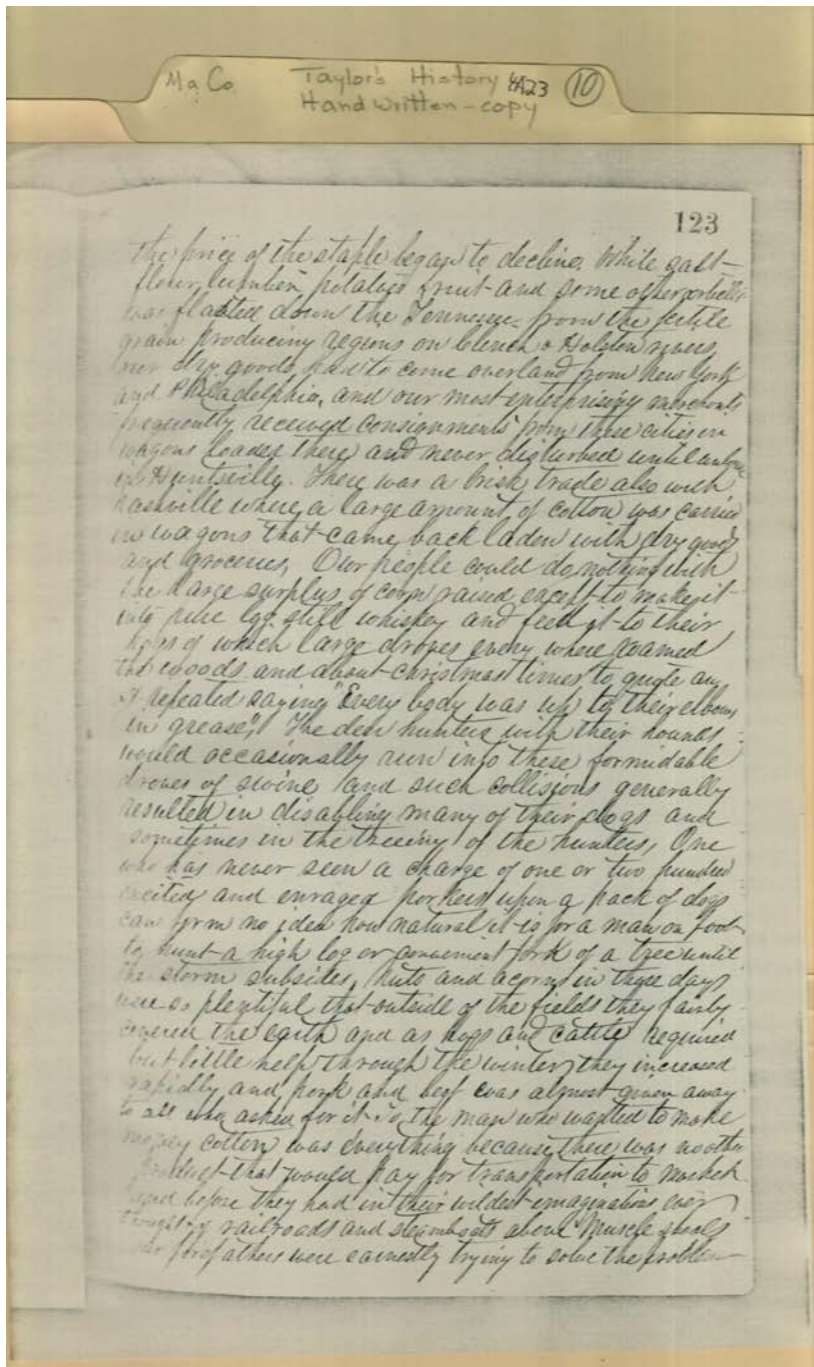 Ma Co. Taylor's History 4A23 10
Hand written - copy
123
the price of the staple began to decline. While salt
flour, lumber, potatoes fruit and some other
was floated down the Tennessee from the fertile
grain producing regions on Clinch & Holston rivers,
our dry goods had to come overland from New York
and Philadelphia, and our most enterprising merchants
frequently received consignments from these cities in
wagons loaded there and never disturbed until
in Huntsville. There was a brisk trade also with
Nashville where a large amount of cotton was carried
in wagons that came back laden with dry goods
and groceries. Our people could do nothing with
the large surplus of corn raised except to make it
into pure log still whiskey and feed it to their
hogs of which large droves every where roamed
the woods and about christmas times to quote an
repeated saying "Every body was up to their elbows
in grease". The deer hunters with their hounds
would occasionally run into these formidable
droves of swine and such collisions generally
resulted in disabling many of their dogs and
sometimes in the treeing of the hunters, One
who has never seen a charge of one or two hundred
excited and enraged porkers upon a pack of dogs
can form no idea how natural it is for a man on foot
to hunt a high log or convenient fork of a tree until
the storm subsides. Nuts and acorns in those days
were so plentiful that outside of the fields they fairly
covered the earth and as hogs and cattle required
but little help through the winter, they increased
rapidly and pork and beef was almost given away
to all who asked for it. To the man who wanted to make
money cotton was everything because there was no other
product that would pay for transportation to market
and before they had in their wildest imaginations ever
thought of railroads and steamboats above Muscle shoals
our forefathers were earnestly trying to solve the problem